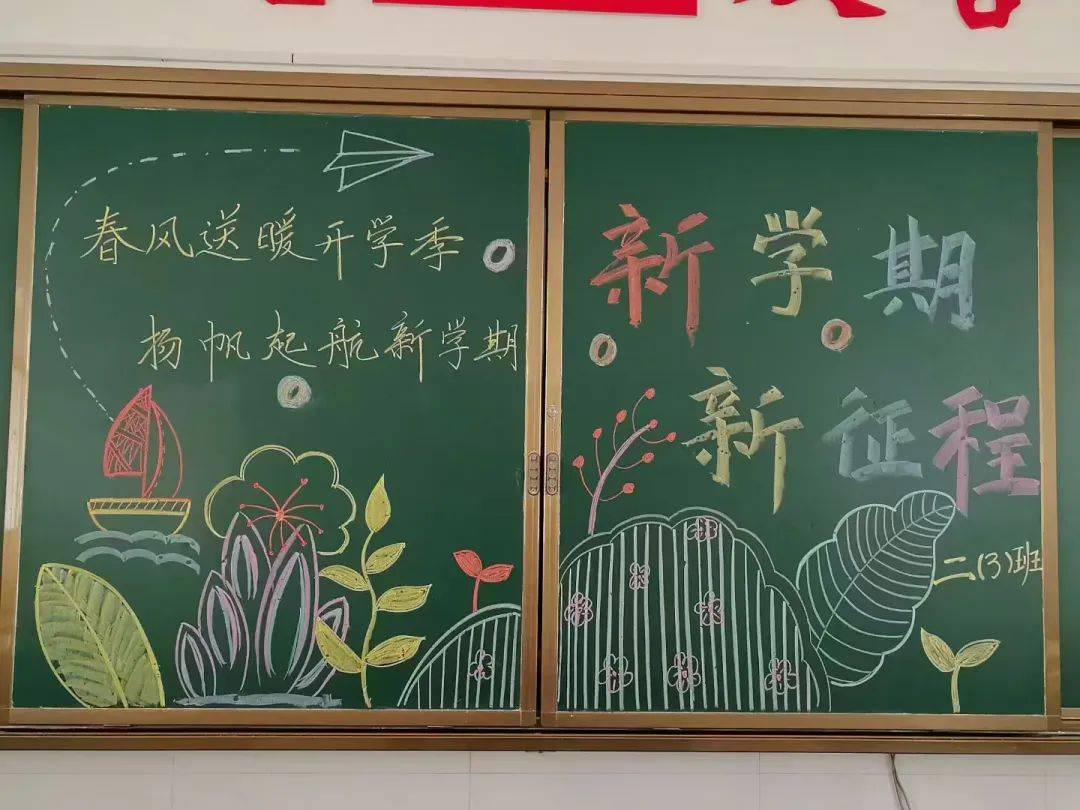 春风送暖开学季
扬帆起航新学期
新学期
新征程
二(3)班